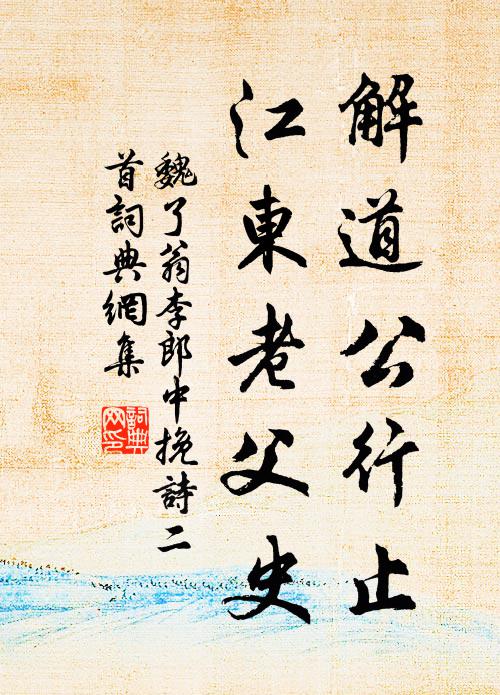 解道公行止
江東老父史
魏了翁李郎中挽詩二
首詞典網集
詞典
网印